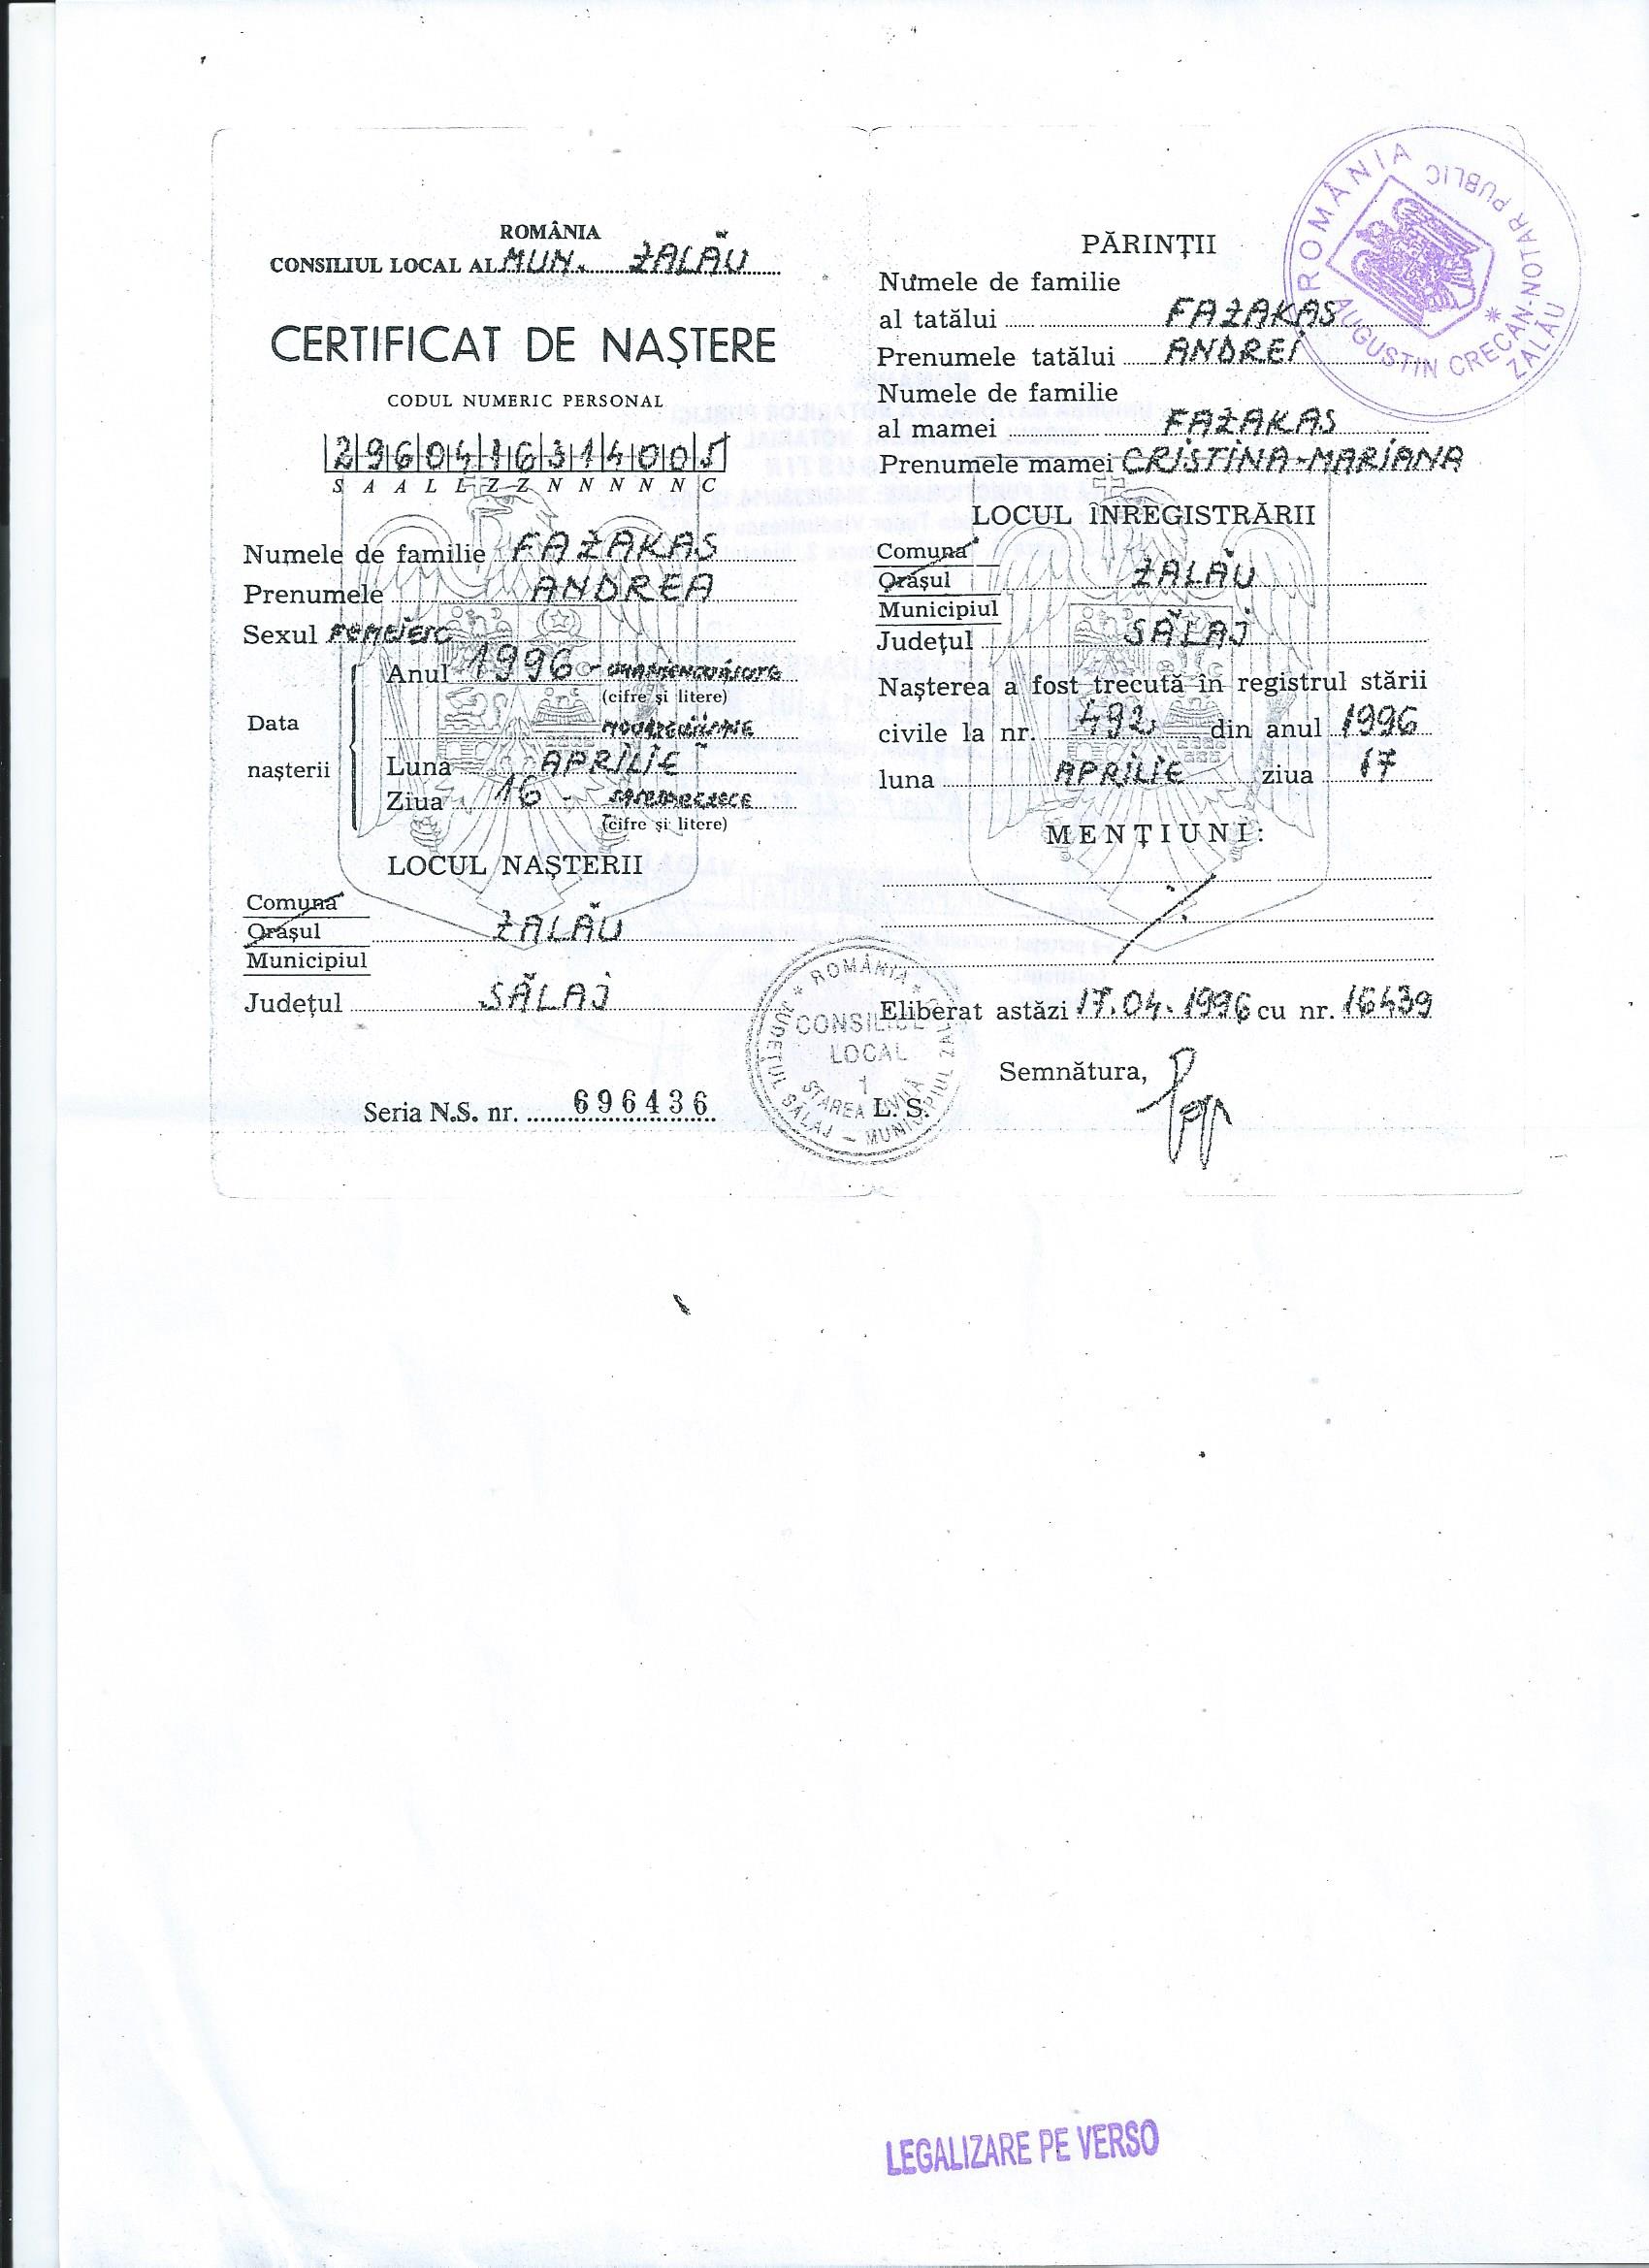 ROMÂNIA
CONSILIUL LOCAL AL MUN. ZALĂU
CERTIFICAT DE NAȘTERE
CODUL NUMERIC PERSONAL
2 9 6 0 4 1 6 3 1 4 0 0 5
S A A L L Z Z N N N N N C
Numele de familie FAZAKAS
Prenumele ANDREA
Sexul FEMEIESC
Data nașterii
Anul 1996 - UNAMIENOUĂSUTE
(cifre și litere)
NOUĂZECIȘIȘASE
Luna APRILIE
Ziua 16 - ȘAISPREZECE
(cifre și litere)
LOCUL NAȘTERII
Comuna
Orașul
Municipiul
ZALĂU
Județul SĂLAJ
Seria N.S. nr. 696436
PĂRINȚII
Numele de familie
al tatălui FAZAKAS
Prenumele tatălui ANDREI
Numele de familie
al mamei FAZAKAS
Prenumele mamei CRISTINA-MARIANA
LOCUL INREGISTRĂRII
Comuna
Orașul
Municipiul
ZALĂU
Județul SĂLAJ
Nașterea a fost trecută în registrul stării
civile la nr. 492 din anul 1996
luna APRILIE ziua 17
MENȚIUNI:
Eliberat astăzi 17.04.1996 cu nr. 16439
Semnătura,
L. S.
* ROMÂNIA *
JUDEȚUL SĂLAJ – MUNICIPIUL ZALĂU
CONSILIUL
LOCAL
1
STAREA CIVILĂ
ROMÂNIA
AUGUSTIN CRECAN-NOTAR PUBLIC
* ZALĂU
LEGALIZARE PE VERSO